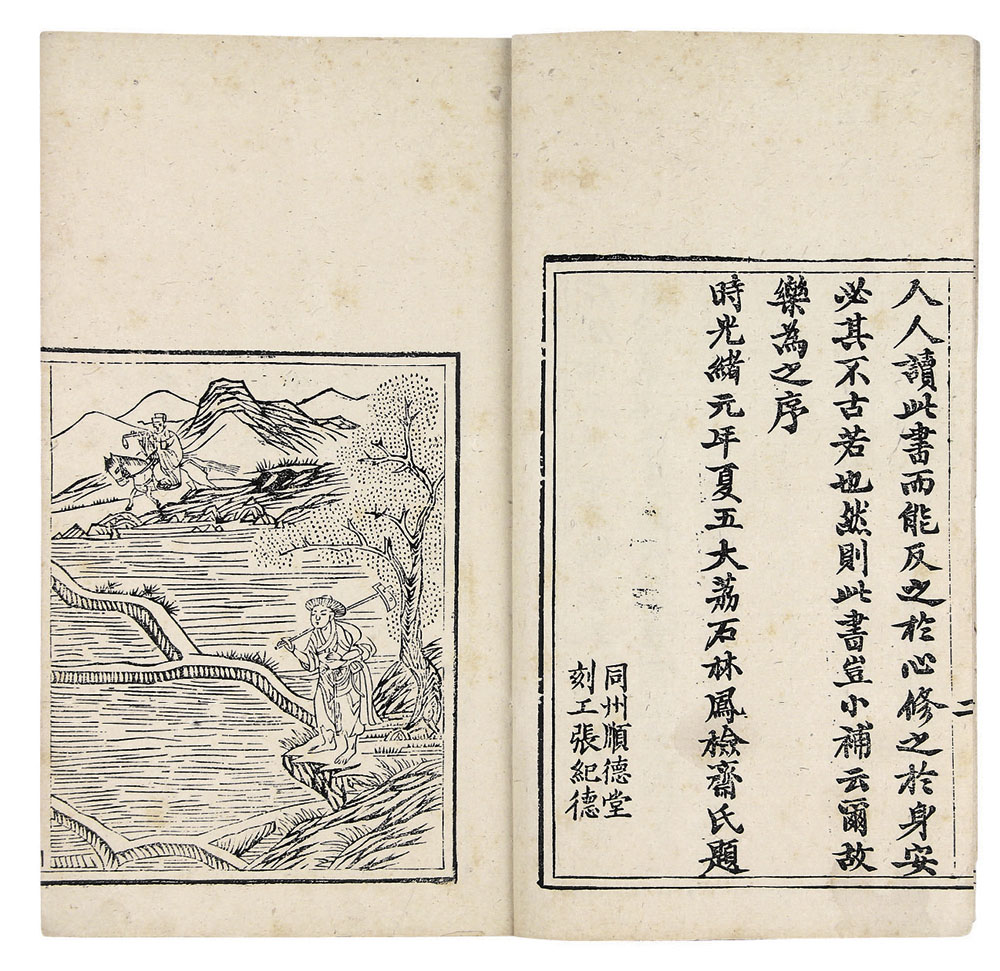 人人讀此書而能反之於心修之於身安
必其不古若也然則此書豈小補云爾故
樂為之序
時光緒元年夏五大荔石林鳳檢齋氏題
同州順德堂
刻工張紀德
二